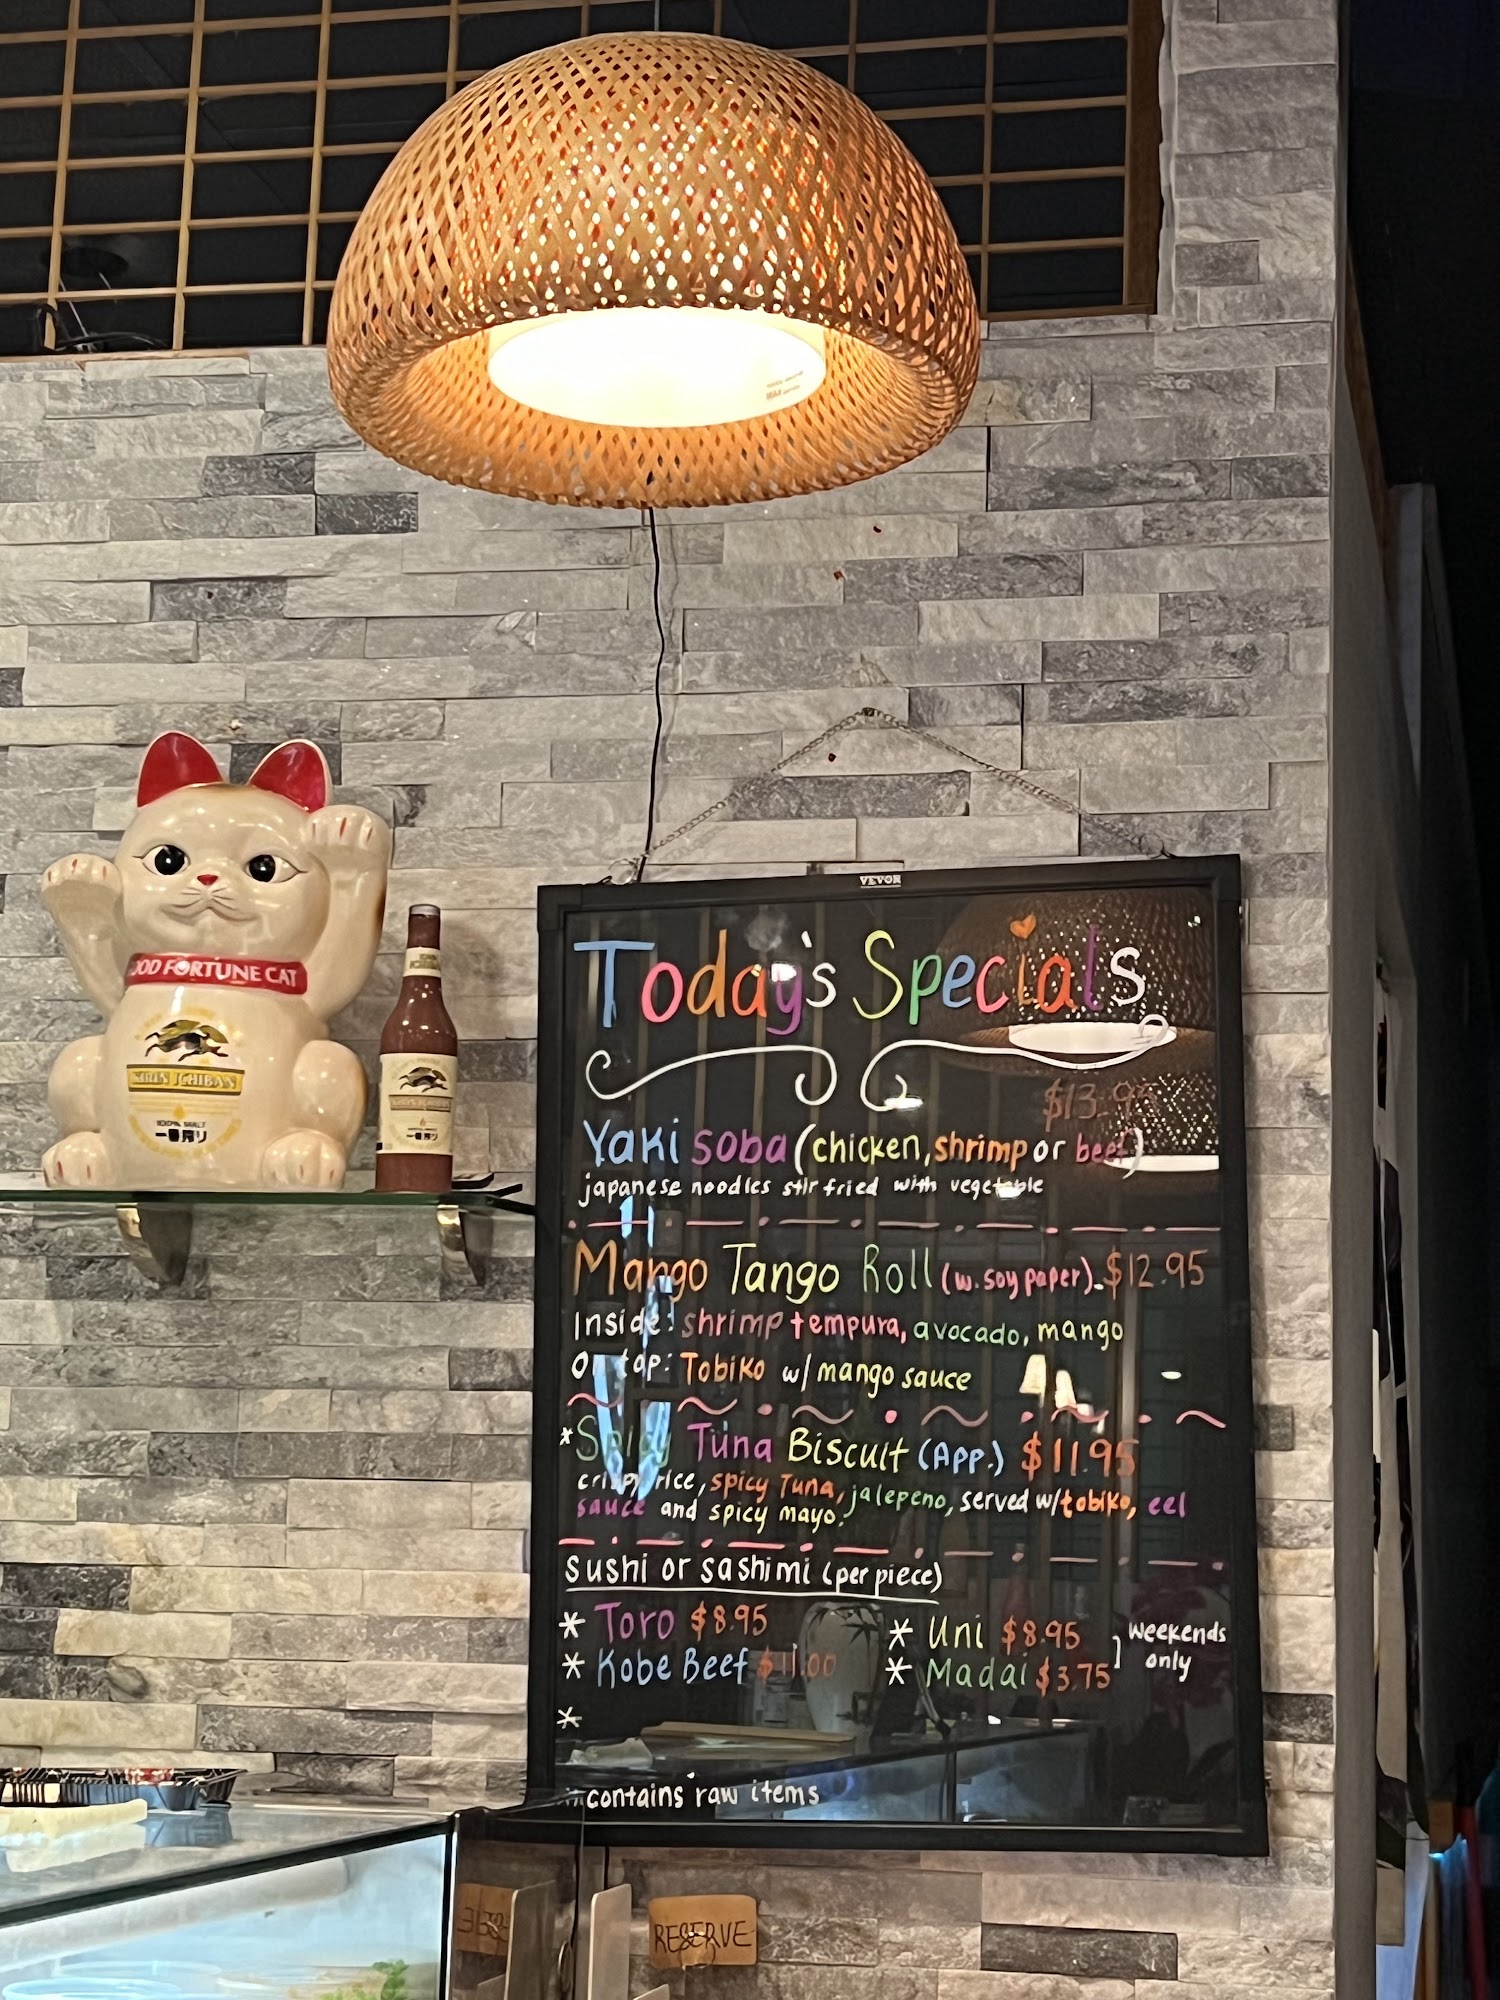 VEVOR
Today's Specials
$13.95
Yaki soba (chicken, shrimp or beef)
japanese noodles stir fried with vegetable
Mango Tango Roll (w. soy paper). $12.95
Inside: shrimp tempura, avocado, mango
On top: Tobiko w/ mango sauce
*Spicy Tuna Biscuit (App.) $11.95
crispy rice, spicy Tuna, jalepeno, served w/tobiko, eel
sauce and spicy mayo.
sushi or sashimi (per piece)
* Toro $8.95
* Kobe Beef $11.00
* Uni $8.95
* Madai $3.75
] weekends
only
*
contains raw items
OOD FORTUNE CAT
KIRIN ICHIBAN
100% MALT
一番搾り
一番搾り
RESERVE